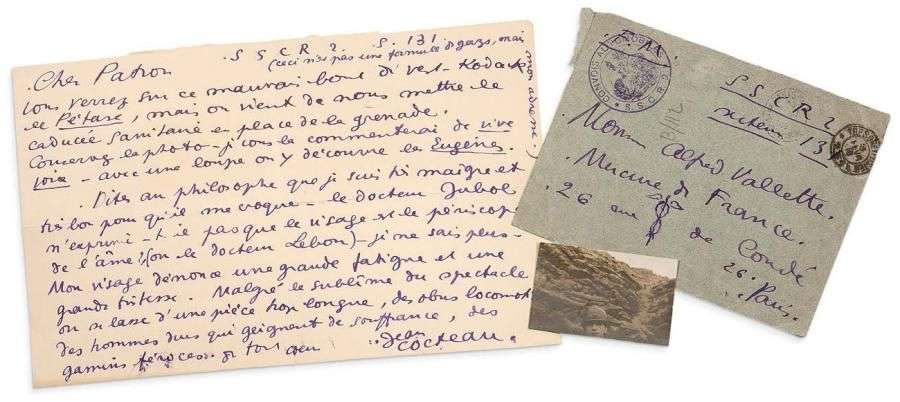 S S C R 2 S. 131
(ceci n'est pas une formule de gazs, mais
mon adresse)
Cher Patron
vous verrez sur ce mauvais bout di vest-Kodack
le Pétase, mais on vient de nous mettre le
caducée sanitaire en place de la grenade.
Conservez la photo - je vous la commenterai de vive
voix - avec une loupe on y découvre les Eugènes.
Dites au philosophe que je suis très maigre et
très bon pour qu'il me croque - le docteur
n'exprime-t-il pas que le visage est le périscope
de l'âme? (ou le docteur Lebon) - je ne sais plus -
Mon visage dénonce une grande fatigue et une
grande tristesse. Malgré le sublime du spectacle
on se lasse d'une pièce trop longue, des obus
des hommes durs qui geignent de souffrance, des
gamins féroces. tout
Jean
Cocteau.
F. M.
CONVOIS AUTOMOBILES
S.S.C.R.
S S C R 2
secteur 131
Monsr Alfred Vallette.
Mercure de France.
26 rue de Condé
26.
Paris.